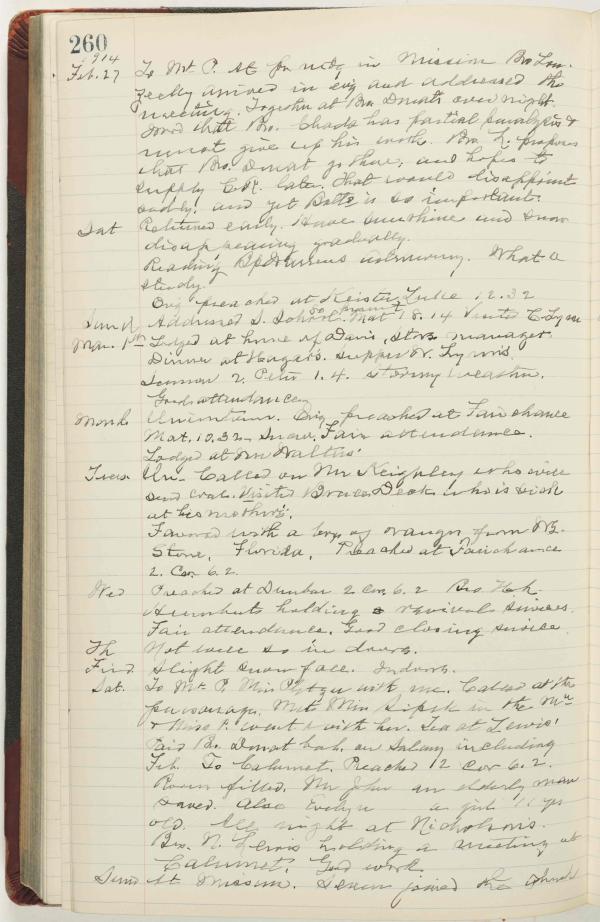 260
1914
Feb. 27 To Mt. P. at for mtg in Mission Bro Low-
arrived in evg and addressed the
meeting. Together at Bro Donat's over night.
that Bro. has partial paralysis &
must give up his work. Bro L. proposes
that Bro. Donat go there, and hopes to
supply C.V. later. That would disappoint
sadly. and yet is so important.
Sat Returned early. Have sunshine and snow
disappearing gradually.
Reading astronomy. What a
study.
Evg preached at Keister Luke 12.32
Sund Addressed S. School. Mat 18.14 Visited
Mar. 1st Lodged at home of Davis, Store manager
Dinner at Hagar's. Supper
Sermon 2. Peter 1.4. Stormy weather.
Good attendance
Mond Uniontown. Evg. preached at Fairchance
Mat. 10.32. Snow. Fair attendance.
Lodged at
Tues. Un- Called on Mr Keighley who will
send coal. Visited Bruce who is sick
at his mother's.
Favored with a box of oranges from
Stone, Florida. Preached at Fairchance
2. Cor 6.2
Wed Preached at Dunbar 2 Cor. 6.2 Bro.
holding revival services.
Fair attendance. Good closing service
Th Not well so in doors.
Frid. Slight snow face. Indoors.
Sat. To Mt. P. Miss with me. Called at the
parsonage. Met Miss in the
& Miss P. went with her. Tea at Lewis'
Paid Bro. Donat bal. on Salary including
Feb. To Calumet. Preached 12 Cor 6.2.
Room filled. Mr John an elderly man
saved. Also Evelyn a girl 11 yrs
old. All night at Nicholson's.
Bro. N. Lewis holding a meeting at
Calumet. Good work
Sund at Mission. Seven joined the church